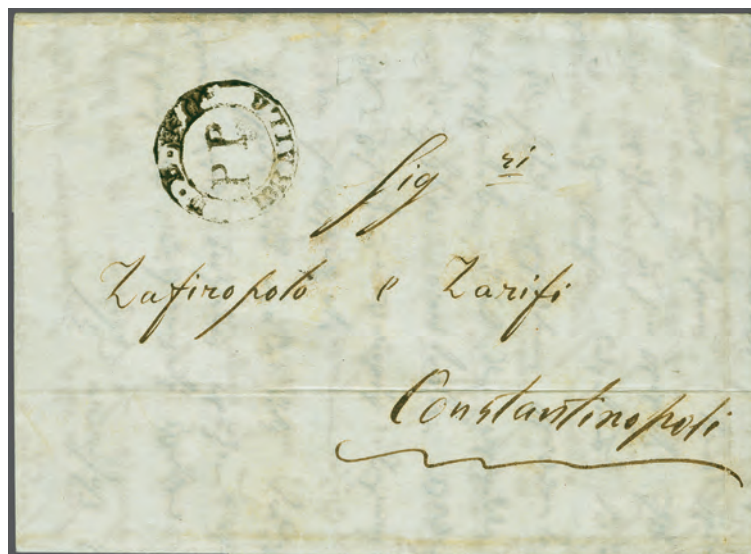 P P
Sig ri
Zafiropolo e Zarifi
Constantinopoli